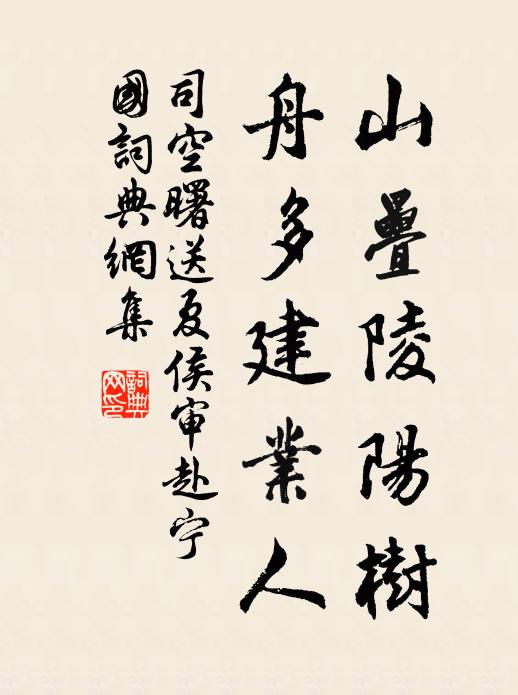 山疊陵陽樹
舟多建業人
司空曙送夏侯审赴宁
國詞典網集
詞典
网印